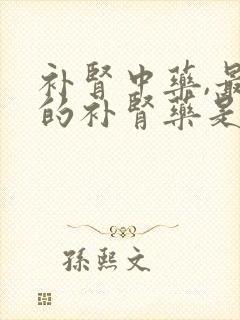 补肾中药,最
的补肾药是
孫熙文